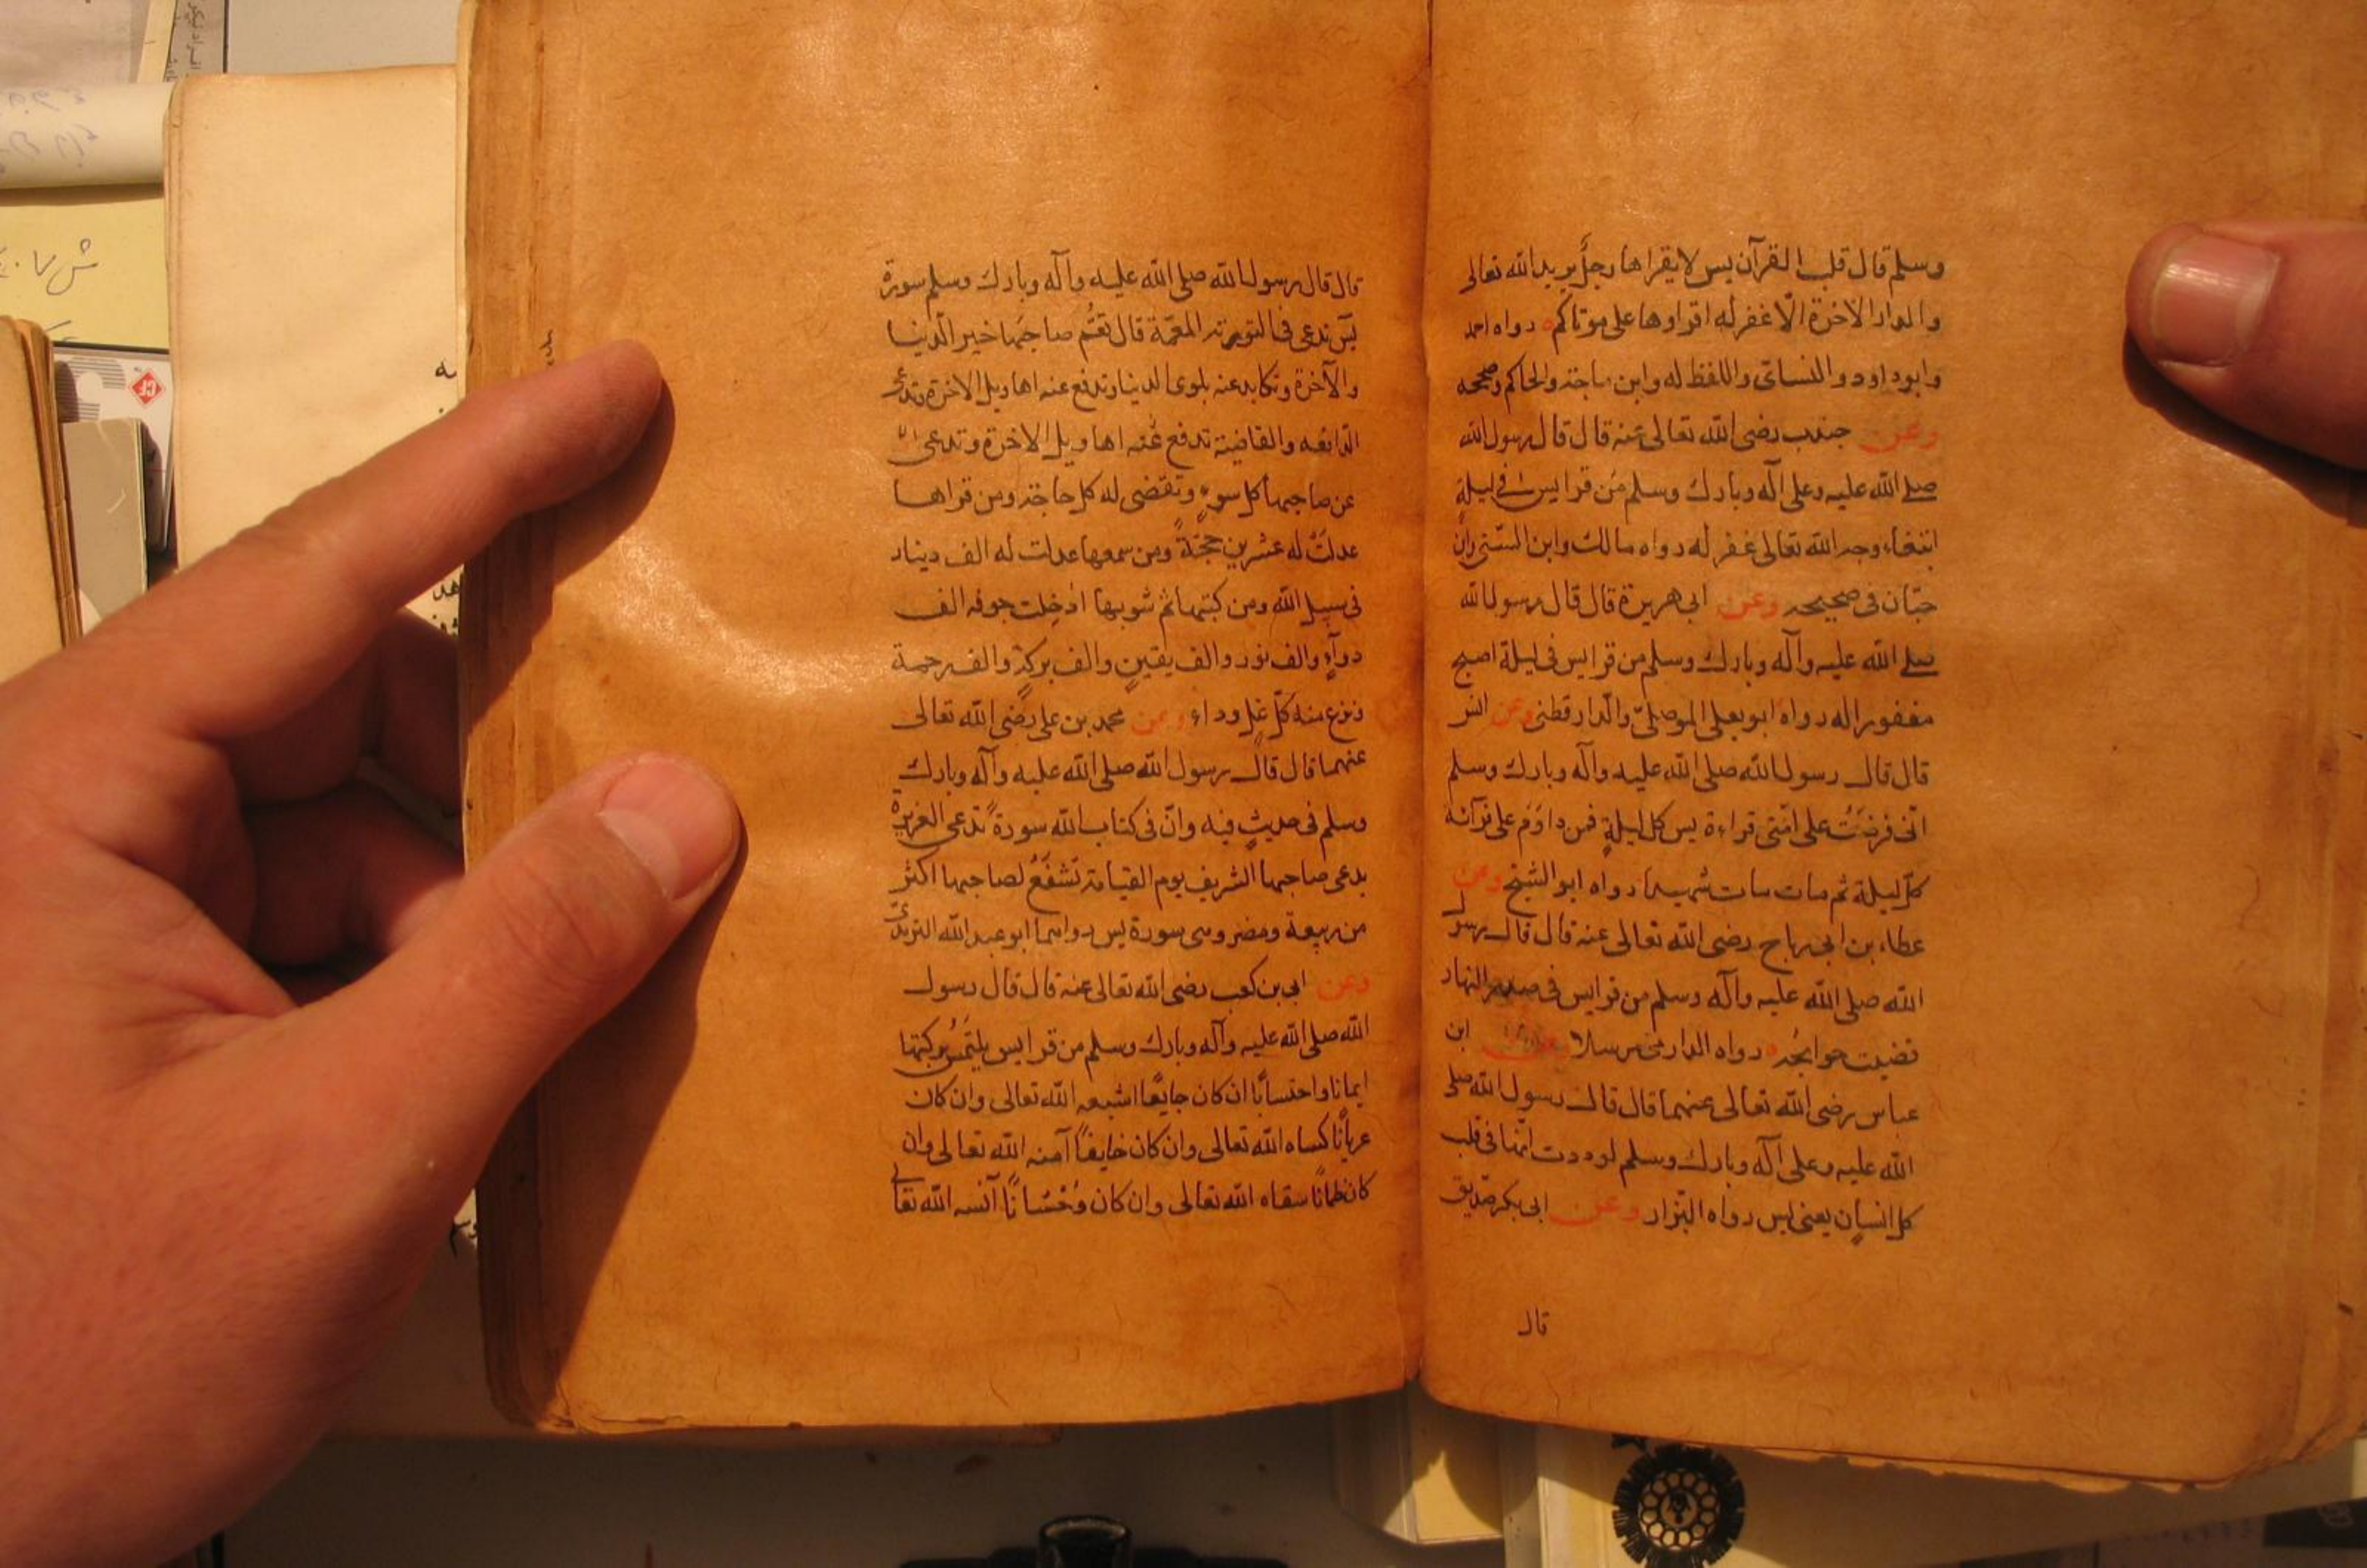 وسلم قال قلب القرآن يس لا يقراها رجل يريد الله تعالى
والدار الاخرة الا غفر له اقراوها على موتاكم رواه احمد
وابو داود والنسائى واللفظ له وابن ماجة والحاكم وصححه
وعن جندب رضى الله تعالى عنه قال قال رسول الله
صلى الله عليه وعلى آله وبارك وسلم من قرا يس فى ليلة
ابتغاء وجه الله تعالى غفر له رواه مالك وابن السنى وابن
حبان فى صحيحه وعن ابى هريرة قال قال رسول الله
صلى الله عليه وآله وبارك وسلم من قرا يس فى ليلة اصبح
مغفورا له رواه ابو يعلى الموصلى والدار قطنى وعن انس
قال قال رسول الله صلى الله عليه وآله وبارك وسلم
انى فرضت على امتى قراءة يس كل ليلة فمن داوم على قرآئة
كل ليلة ثم مات مات شهيدا رواه ابو الشيخ وعن
عطاء بن ابى رباح رضى الله تعالى عنه قال قال رسول
الله صلى الله عليه وآله وسلم من قرا يس فى صدر النهار
قضيت حوايجه رواه الدارمى مرسلا وعن ابن
عباس رضى الله تعالى عنهما قال قال رسول الله صلى
الله عليه وعلى آله وبارك وسلم لوددت انها فى قلب
كل انسان يعنى يس رواه البزار وعن ابى بكر صديق
قال
قال قال رسول الله صلى الله عليه وآله وبارك وسلم سورة
يس تدعى فى التورية المعمة قال تعم صاحبها خير الدنيا
والآخرة وتكابد عنه بلوى الدنيا وتدفع عنه اهاويل الاخرة وتدعى
الدافعه والقاضية تدفع عنه اهاويل الاخرة وتدعى
عن صاحبها كل سوء وتقضى له كل حاجة ومن قراها
عدلت له عشرين حجة ومن سمعها عدلت له الف دينار
فى سبيل الله ومن كتبها ثم شربها ادخلت جوفه الف
دوآء والف نور والف يقين والف بركة والف رحمة
ونزع منه كل غل وداء وعن محمد بن على رضى الله تعالى
عنهما قال قال رسول الله صلى الله عليه وآله وبارك
وسلم فى حديث فيه وان فى كتاب الله سورة تدعى العزيزة
يدعى صاحبها الشريف يوم القيامة تشفع لصاحبها اكثر
من ربيعة ومضر وهى سورة يس رواهما ابو عبد الله الترمذى
وعن ابى بن كعب رضى الله تعالى عنه قال قال رسول
الله صلى الله عليه وآله وبارك وسلم من قرا يس يلتمس بركتها
ايمانا واحتسابا ان كان جايعا اشبعه الله تعالى وان كان
عريانا كساه الله تعالى وان كان خايفا آمنه الله تعالى وان
كان ظمانا سقاه الله تعالى وان كان وحشانا آنسه الله تعالى